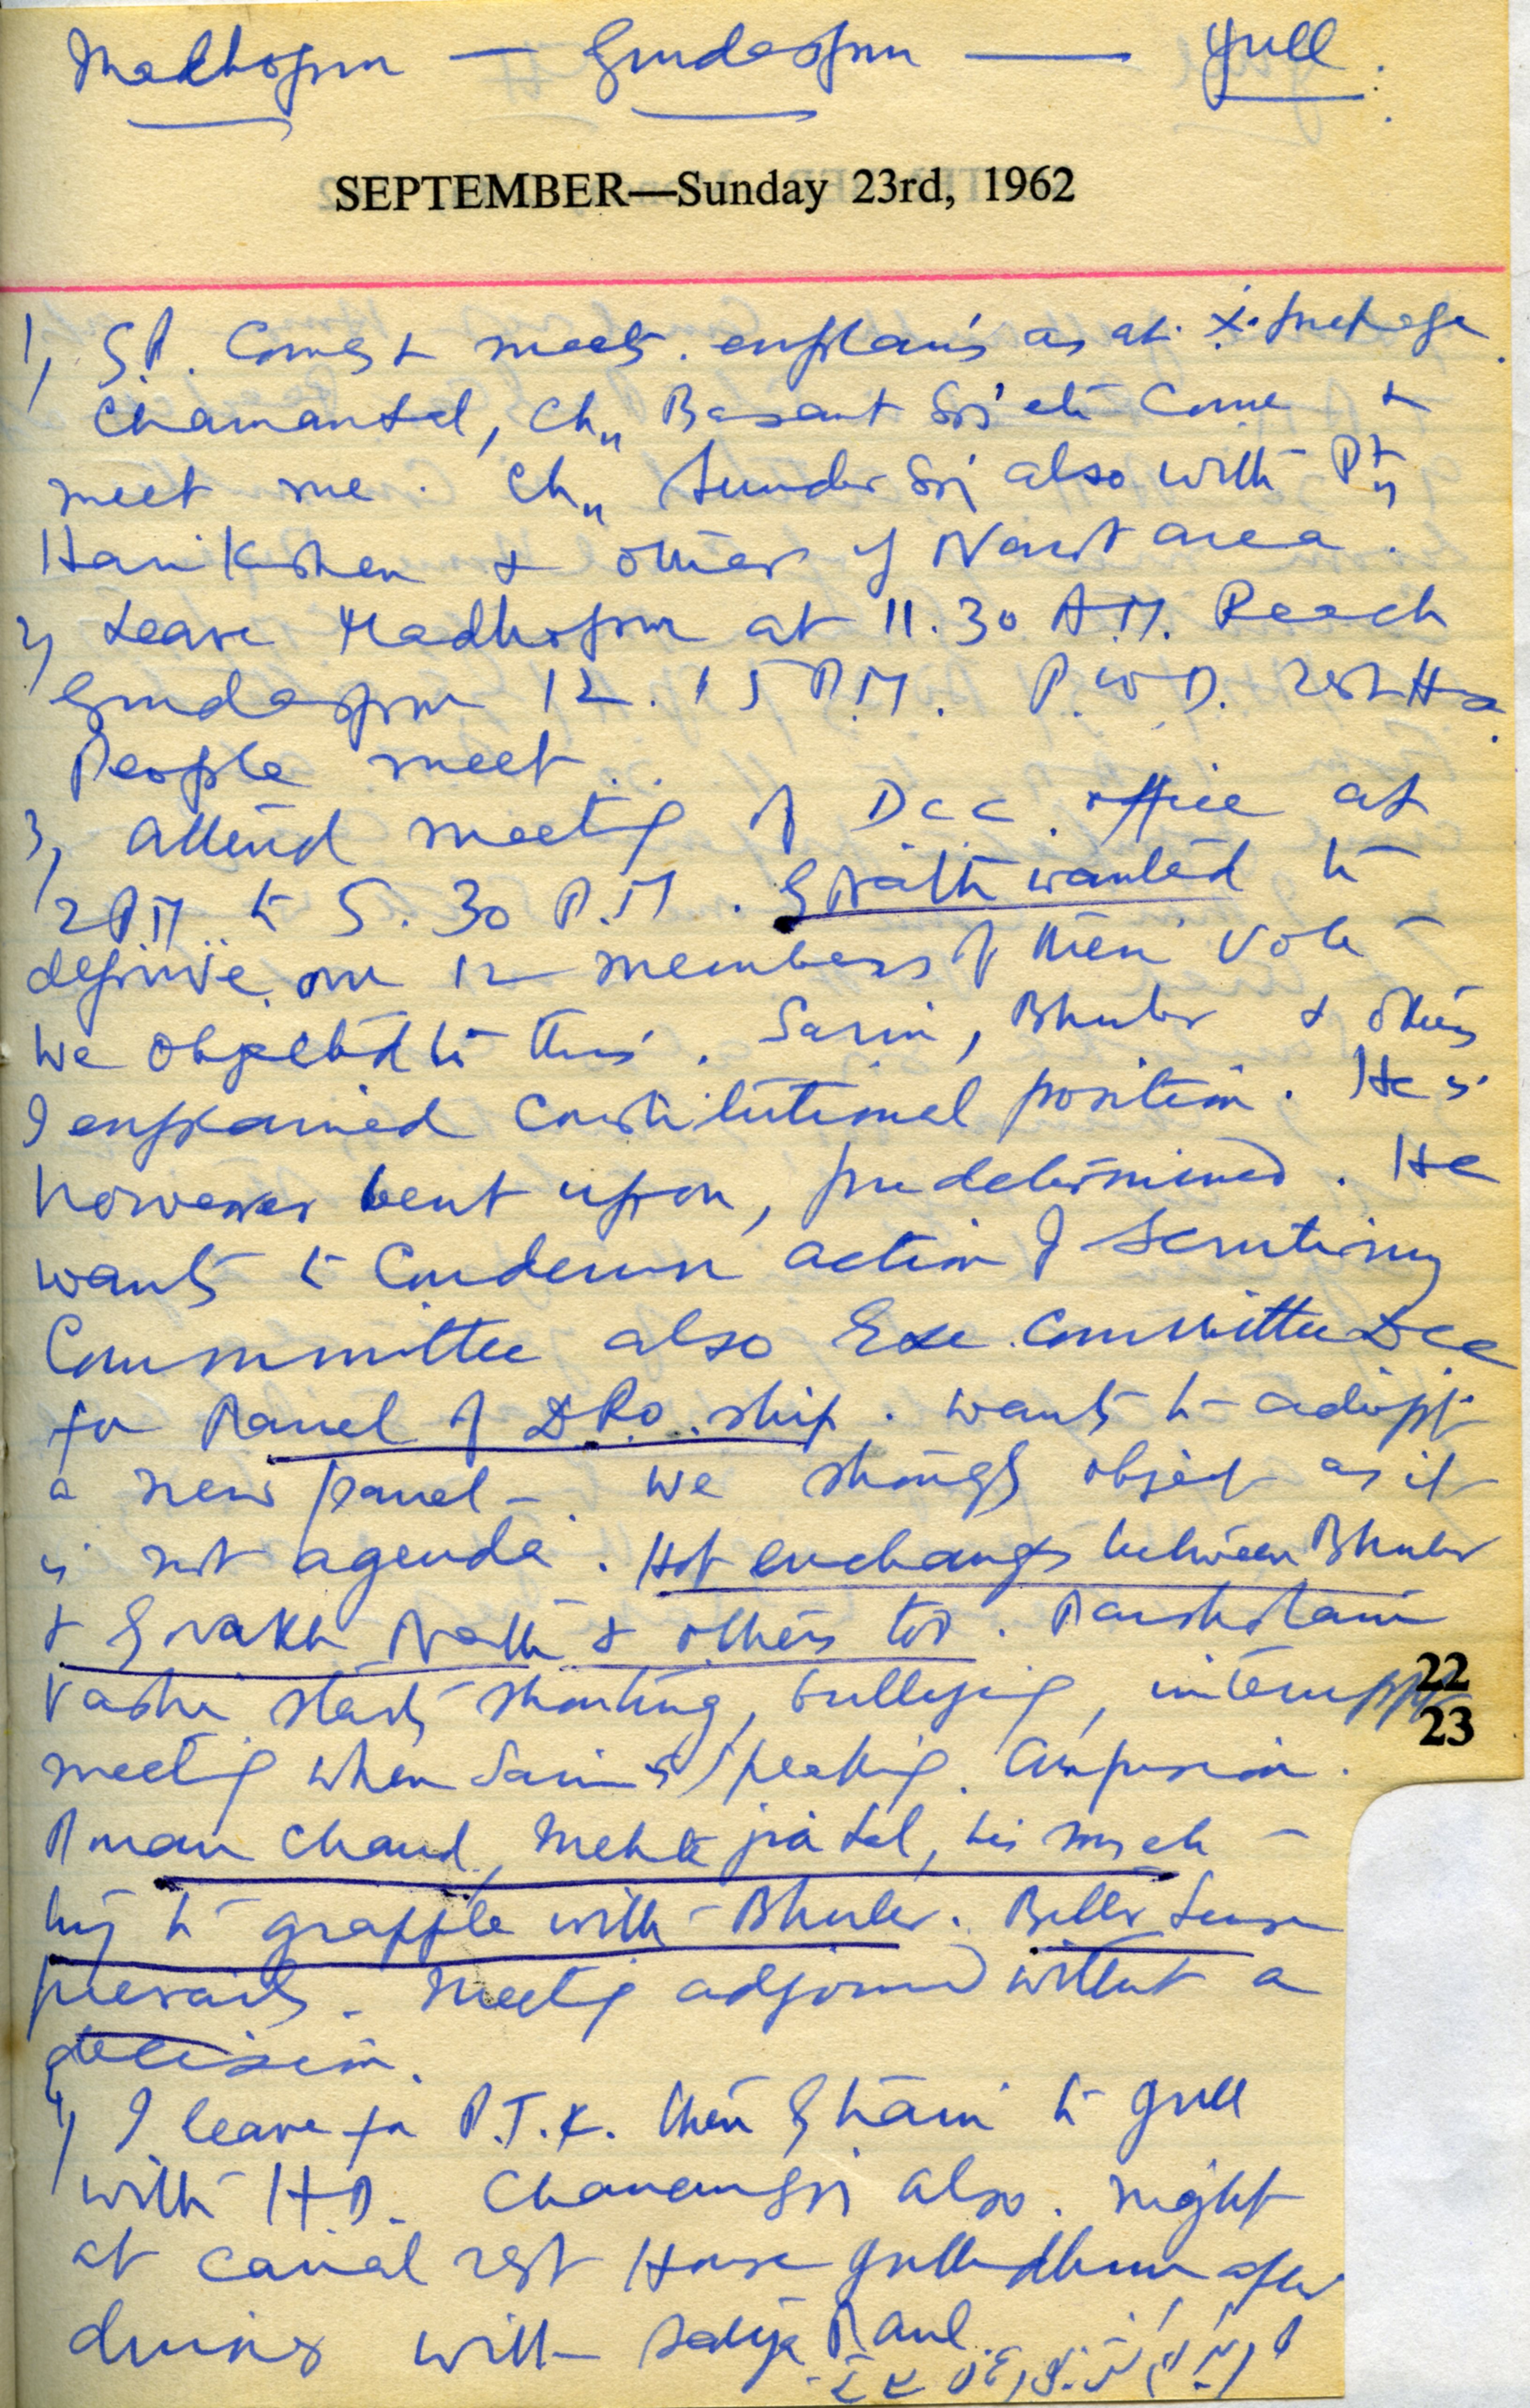 Madhopur — Gurdaspur — Gull.
SEPTEMBER—Sunday 23rd, 1962
1, S.P. Comes & meets. explains as at
Chamanlal, Ch,, Basant Sri etc Come &
meet me. Ch,, Sunder Sri also with Pt,,
Harikishen & others of Narot area.
2, Leave Madhopur at 11.30 A.M. Reach
Gurdaspur 12.15 P.M. P.W.D. rest Hse.
People meet.
3, Attend meeting of Dcc. office at
2 PM to 5.30 P.M. GNath wanted to
deprive our 12 members of their vote
we objected to this. Sarin, Bhuler & others
I explained Constitutional position. He is
however bent upon, predetermined. He
wants to Condemn action of Scrutiny
Committee also Exe. Committee Dcc
for Panel of D.R.O. ship. wants to adopt
a new panel - we strongly object as it
is not agenda. Hot exchanges between Bhuler
& Gorakh Nath & others too. Parshotam
Vashe starts shouting, bullying,
22
23
meeting when Sarin is speaking. Confusion.
Puran Chand, Mehta
to grapple with Bhuler. Better sense
prevails. Meeting adjourned without a
decision.
4, I leave for P.T.K. then to Gull
with H.D. also. night
at canal rest House after
with Satya Paul.